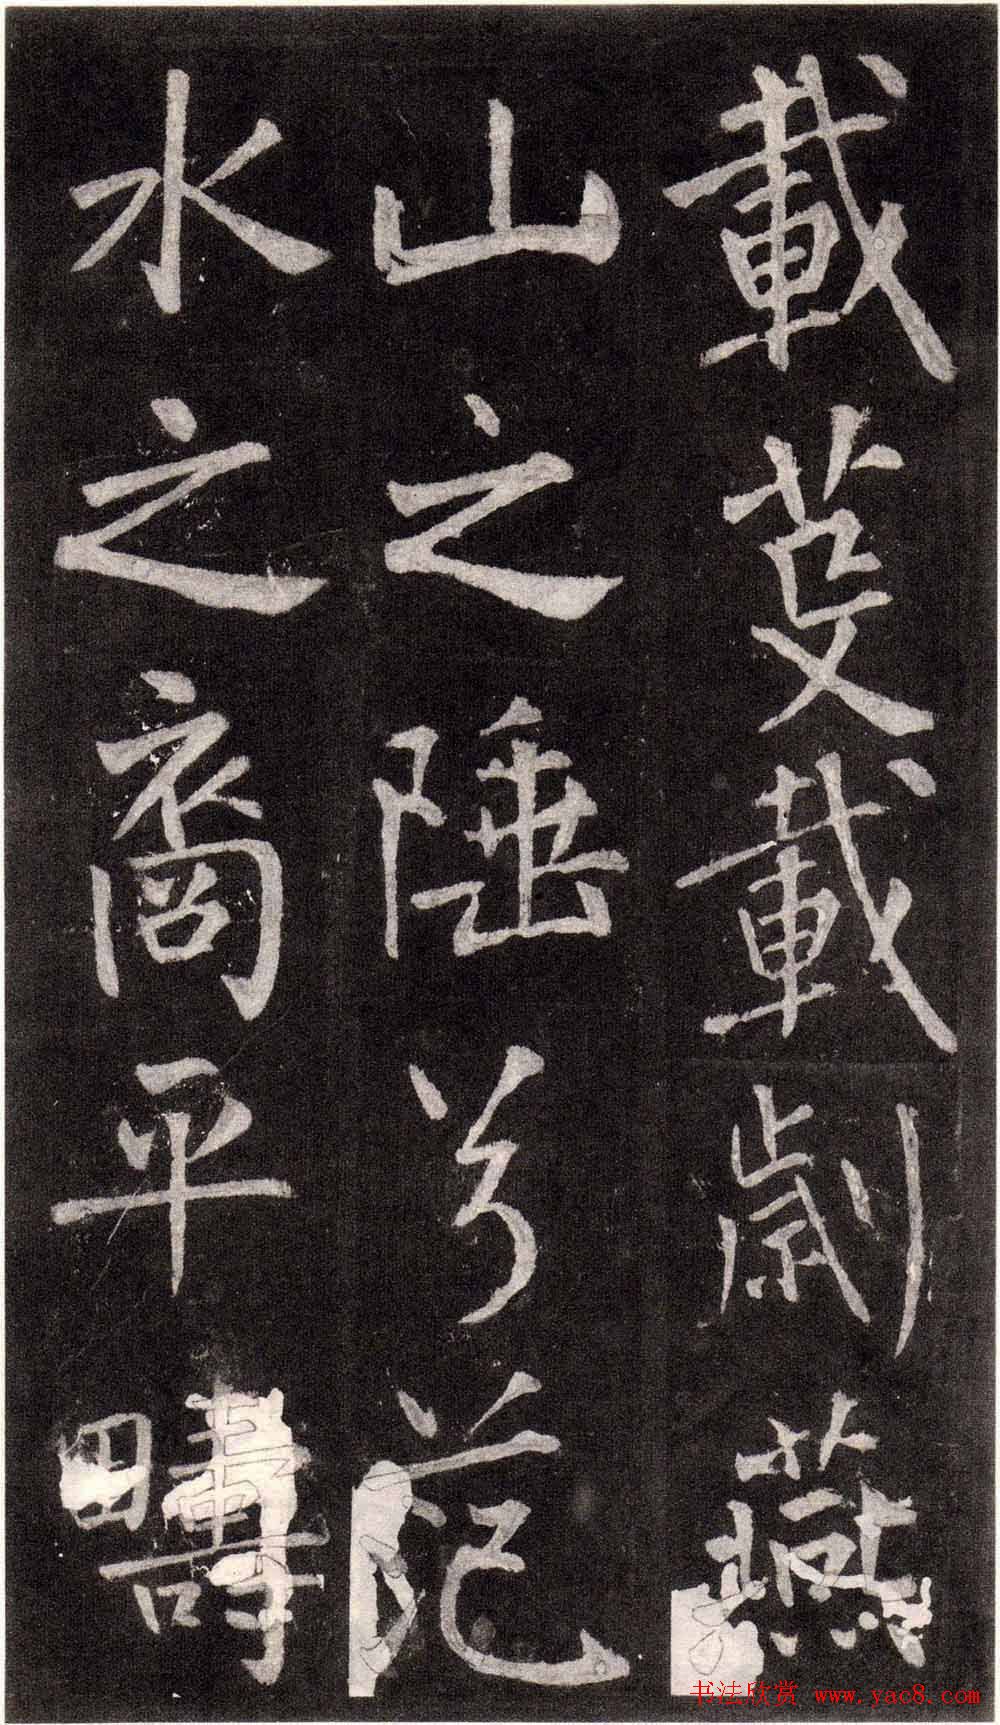 載芟載劌燕
山之陲兮范
水之裔平疇
书法欣赏 www.yac8.com